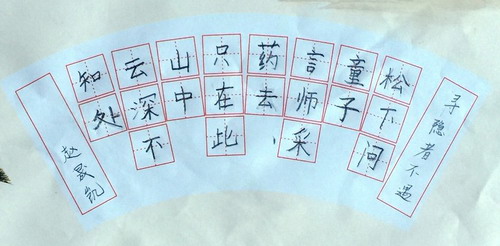 寻隐者不遇
松下问
童子
言师采
药去
只在此
山中
云深不
知处
赵晟凯